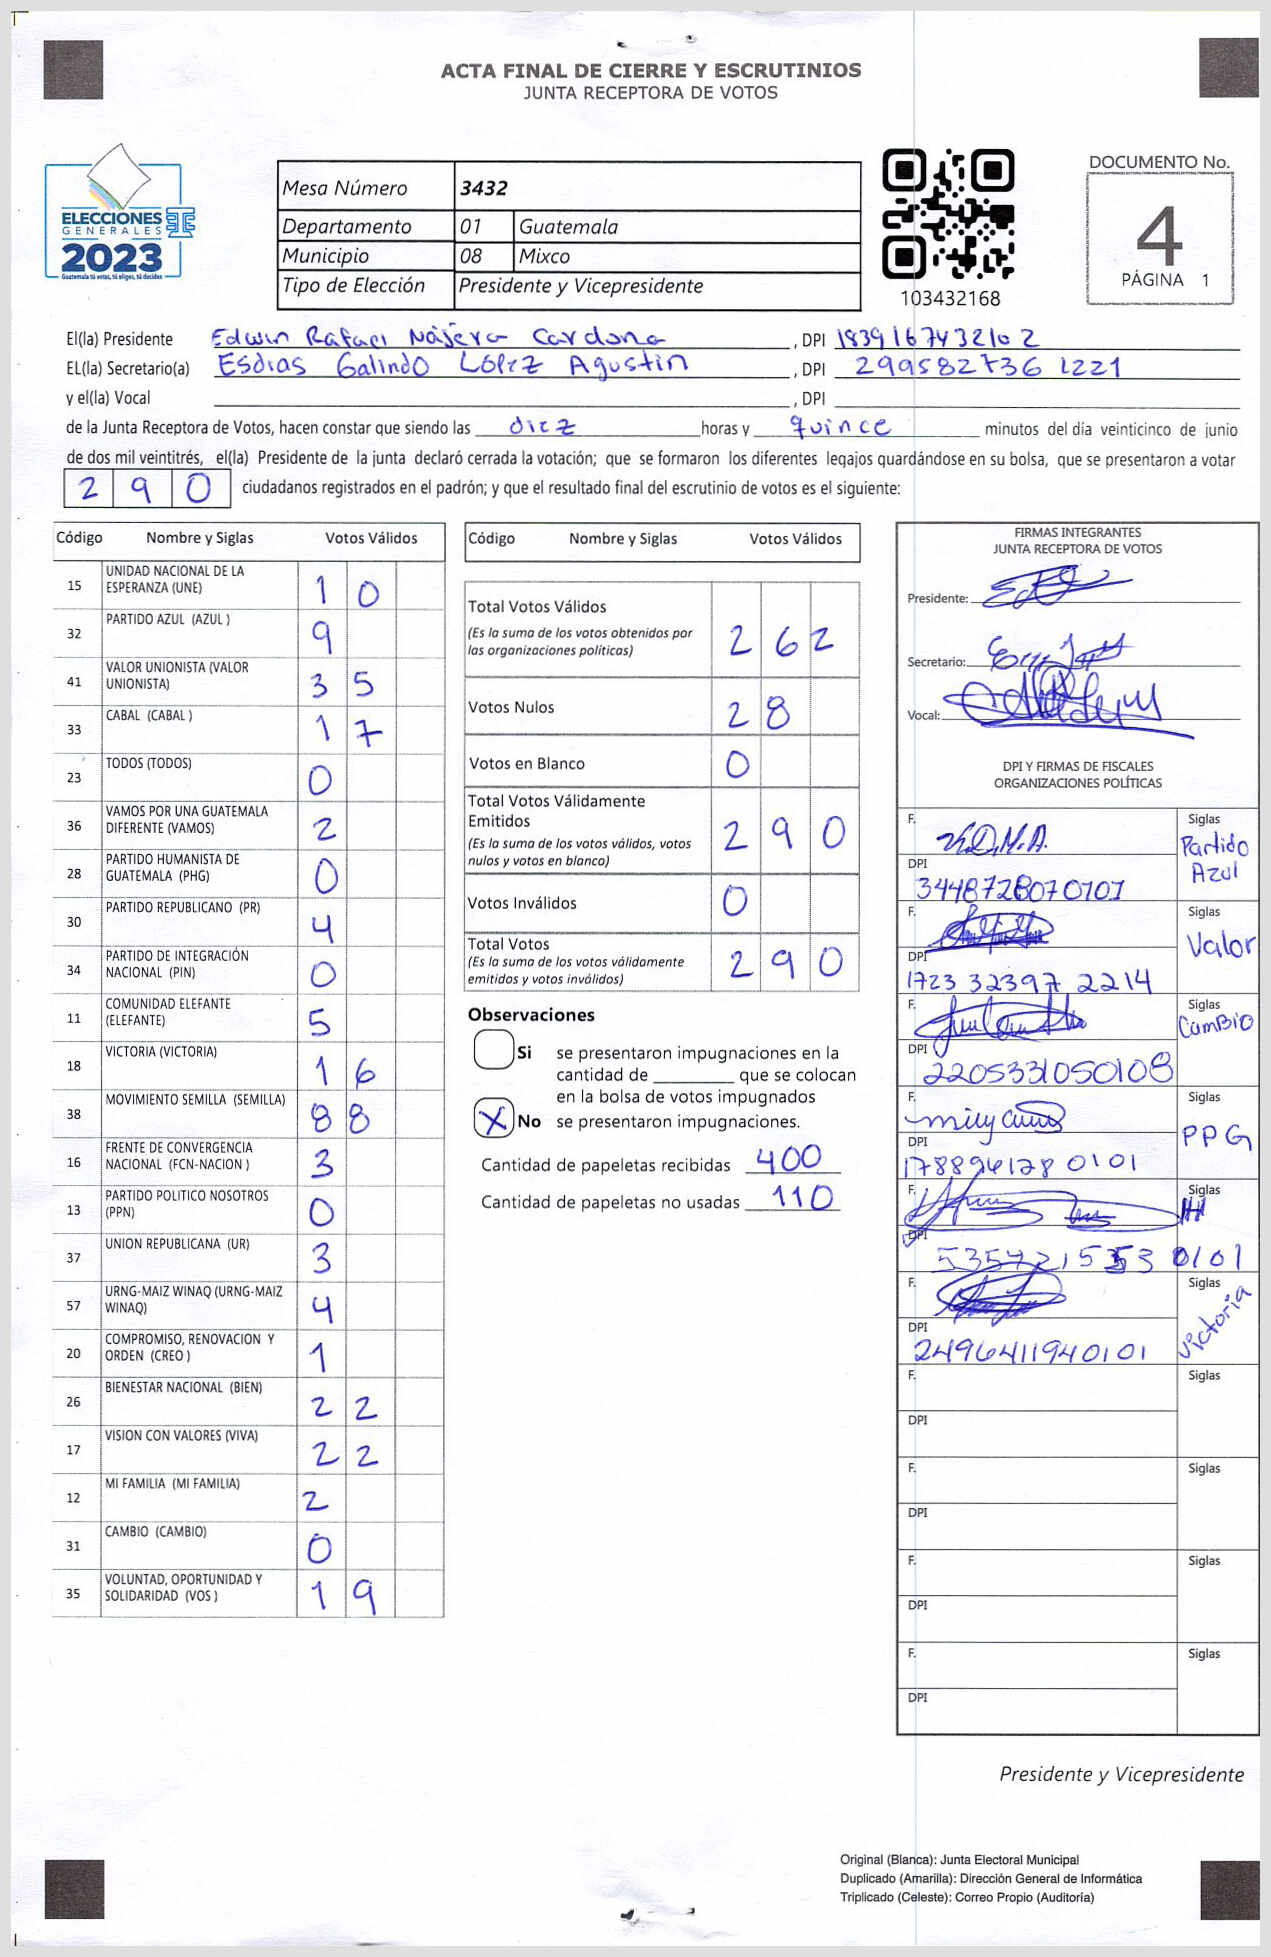 ACTA FINAL DE CIERRE Y ESCRUTINIOS
JUNTA RECEPTORA DE VOTOS
ELECCIONES
GENERALES
2023
Guatemala tú votas, tú eliges, tú decides
Mesa Número 3432
Departamento 01 Guatemala
Municipio 08 Mixco
Tipo de Elección Presidente y Vicepresidente
103432168
DOCUMENTO No.
4
PÁGINA 1
El(la) Presidente Edwin Rafael Nájera Cardona, DPI 1839167432102
EL(la) Secretario(a) Esdias Galindo López Agustin, DPI 299582736 1221
y el(la) Vocal , DPI
de la Junta Receptora de Votos, hacen constar que siendo las diez horas y quince minutos del día veinticinco de junio
de dos mil veintitrés, el(la) Presidente de la junta declaró cerrada la votación; que se formaron los diferentes legajos guardándose en su bolsa, que se presentaron a votar
290 ciudadanos registrados en el padrón; y que el resultado final del escrutinio de votos es el siguiente:
Código Nombre y Siglas Votos Válidos
15 UNIDAD NACIONAL DE LA ESPERANZA (UNE) 10
32 PARTIDO AZUL (AZUL ) 9
41 VALOR UNIONISTA (VALOR UNIONISTA) 35
33 CABAL (CABAL ) 17
23 TODOS (TODOS) 0
36 VAMOS POR UNA GUATEMALA DIFERENTE (VAMOS) 2
28 PARTIDO HUMANISTA DE GUATEMALA (PHG) 0
30 PARTIDO REPUBLICANO (PR) 4
34 PARTIDO DE INTEGRACIÓN NACIONAL (PIN) 0
11 COMUNIDAD ELEFANTE (ELEFANTE) 5
18 VICTORIA (VICTORIA) 16
38 MOVIMIENTO SEMILLA (SEMILLA) 88
16 FRENTE DE CONVERGENCIA NACIONAL (FCN-NACION ) 3
13 PARTIDO POLITICO NOSOTROS (PPN) 0
37 UNION REPUBLICANA (UR) 3
57 URNG-MAIZ WINAQ (URNG-MAIZ WINAQ) 4
20 COMPROMISO, RENOVACION Y ORDEN (CREO ) 1
26 BIENESTAR NACIONAL (BIEN) 22
17 VISION CON VALORES (VIVA) 22
12 MI FAMILIA (MI FAMILIA) 2
31 CAMBIO (CAMBIO) 0
35 VOLUNTAD, OPORTUNIDAD Y SOLIDARIDAD (VOS ) 19
Código Nombre y Siglas Votos Válidos
Total Votos Válidos 262
(Es la suma de los votos obtenidos por
las organizaciones políticas)
Votos Nulos 28
Votos en Blanco 0
Total Votos Válidamente
Emitidos 290
(Es la suma de los votos válidos, votos
nulos y votos en blanco)
Votos Inválidos 0
Total Votos 290
(Es la suma de los votos válidamente
emitidos y votos inválidos)
Observaciones
Si se presentaron impugnaciones en la
cantidad de ________ que se colocan
en la bolsa de votos impugnados
X No se presentaron impugnaciones.
Cantidad de papeletas recibidas 400
Cantidad de papeletas no usadas 110
FIRMAS INTEGRANTES
JUNTA RECEPTORA DE VOTOS
Presidente:
Secretario:
Vocal:
DPI Y FIRMAS DE FISCALES
ORGANIZACIONES POLÍTICAS
F. Siglas
Partido Azul
DPI 3448728070101
F. Siglas
Valor
DPI 1723 32397 2214
F. Siglas
Cambio
DPI 2205331050108
F. Siglas
PPG
DPI 178894128 0101
F. Siglas
DPI
F. Siglas
Victoria
DPI 2496411940101
F. Siglas
DPI
F. Siglas
DPI
F. Siglas
DPI
F. Siglas
DPI
Presidente y Vicepresidente
Original (Blanca): Junta Electoral Municipal
Duplicado (Amarilla): Dirección General de Informática
Triplicado (Celeste): Correo Propio (Auditoría)